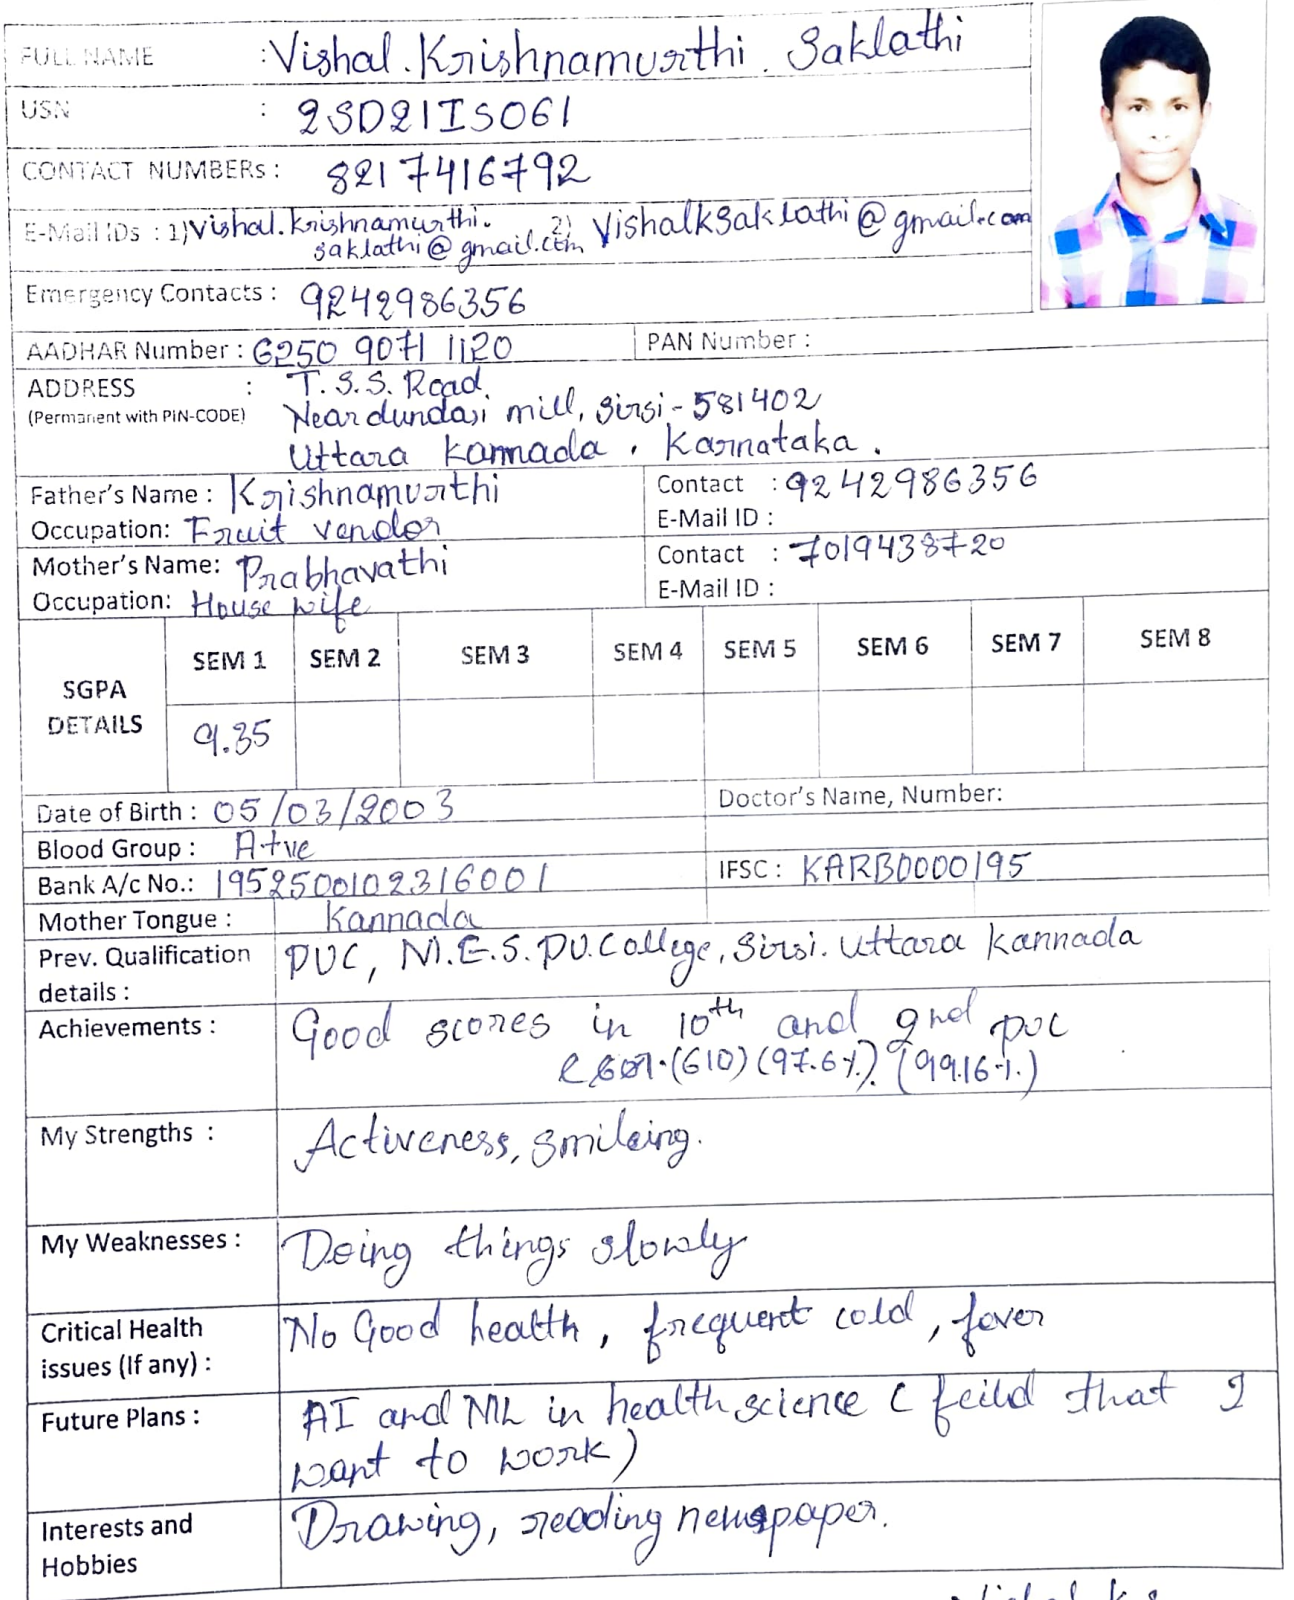 FULL NAME : Vishal. Krishnamurthi. Saklathi
USN : 2SD21IS061
CONTACT NUMBERs : 8217416792
E-Mail IDs : 1) Vishal.krishnamurthi. 2) Vishalksaklathi@gmail.com
saklathi@gmail.com
Emergency Contacts : 9242986356
AADHAR Number : 6250 9071 1120 PAN Number :
ADDRESS : T.S.S. Road
(Permanent with PIN-CODE) Near dundasi mill, Sirsi - 581402
Uttara kannada , Karnataka .
Father's Name : Krishnamurthi Contact : 9242986356
Occupation: Fruit vendor E-Mail ID :
Mother's Name: Prabhavathi Contact : 7019438720
Occupation: House wife E-Mail ID :
SGPA DETAILS
SEM 1 SEM 2 SEM 3 SEM 4 SEM 5 SEM 6 SEM 7 SEM 8
9.35
Date of Birth : 05/03/2003 Doctor's Name, Number:
Blood Group : A+ve
Bank A/c No.: 1952500102316001 IFSC : KARB0000195
Mother Tongue : Kannada
Prev. Qualification PUC, M.E.S. PU. College, Sirsi. Uttara kannada
details :
Achievements : Good scores in 10th and 2nd puc
(610) (97.6%). (99.16%.)
My Strengths : Activeness, smileing.
My Weaknesses : Doing things slowly
Critical Health No Good health , frequent cold , fever
issues (If any) :
Future Plans : AI and ML in health science ( feild that I
want to work)
Interests and Drawing, reading newspaper.
Hobbies